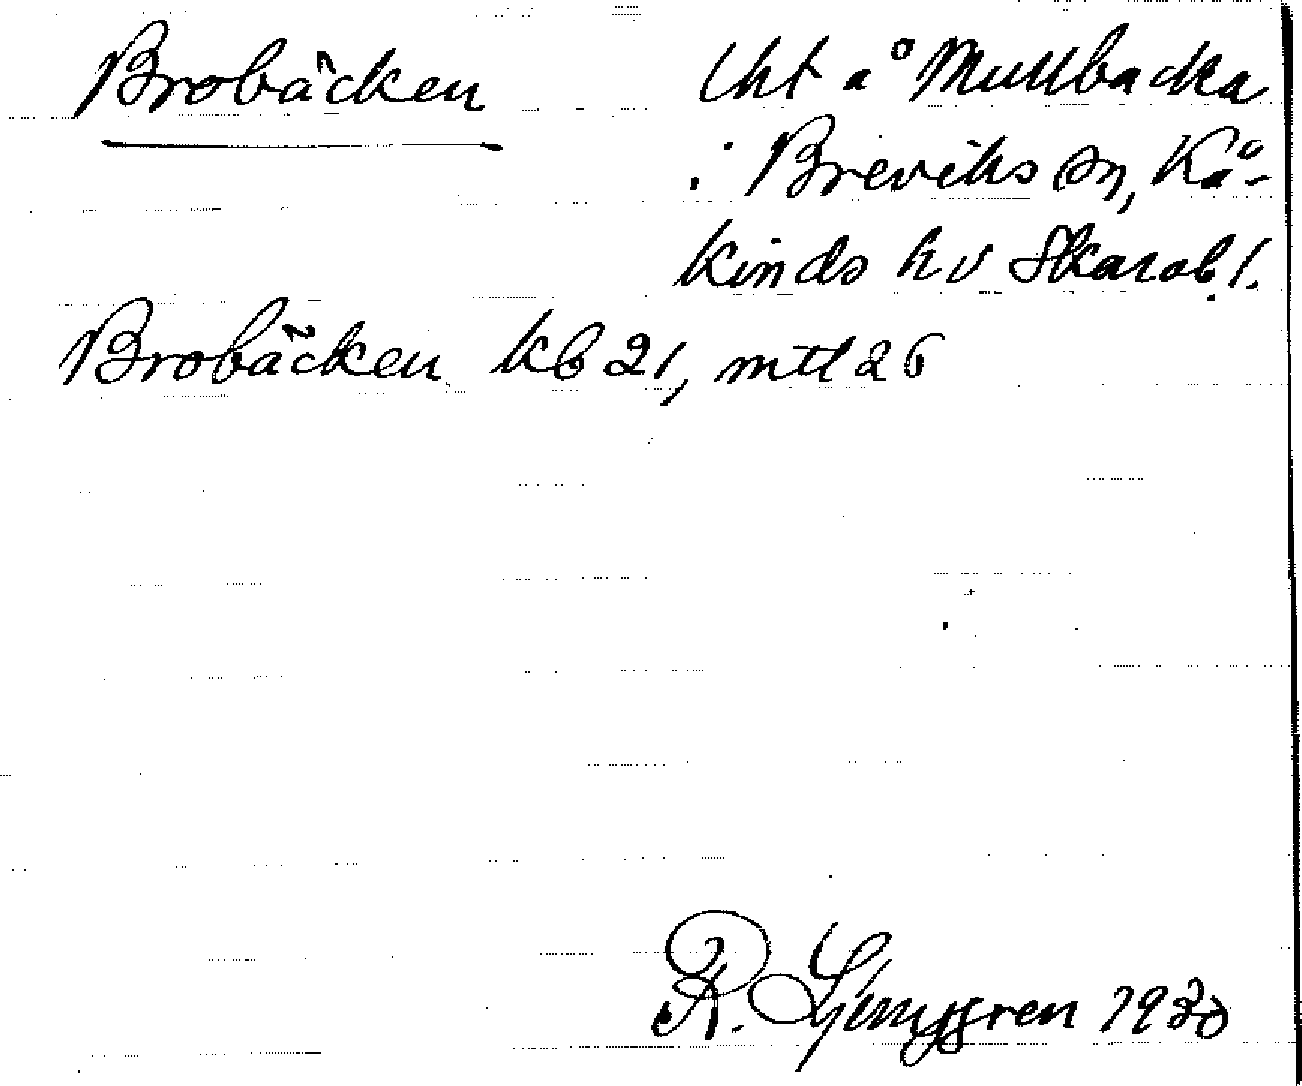 Brobäcken
Lht å Mullbacka
i Breviks sn, Kå-
kinds hd Skarab. l.
Brobäcken kb 21, mtl 26
R. Ljunggren 1930